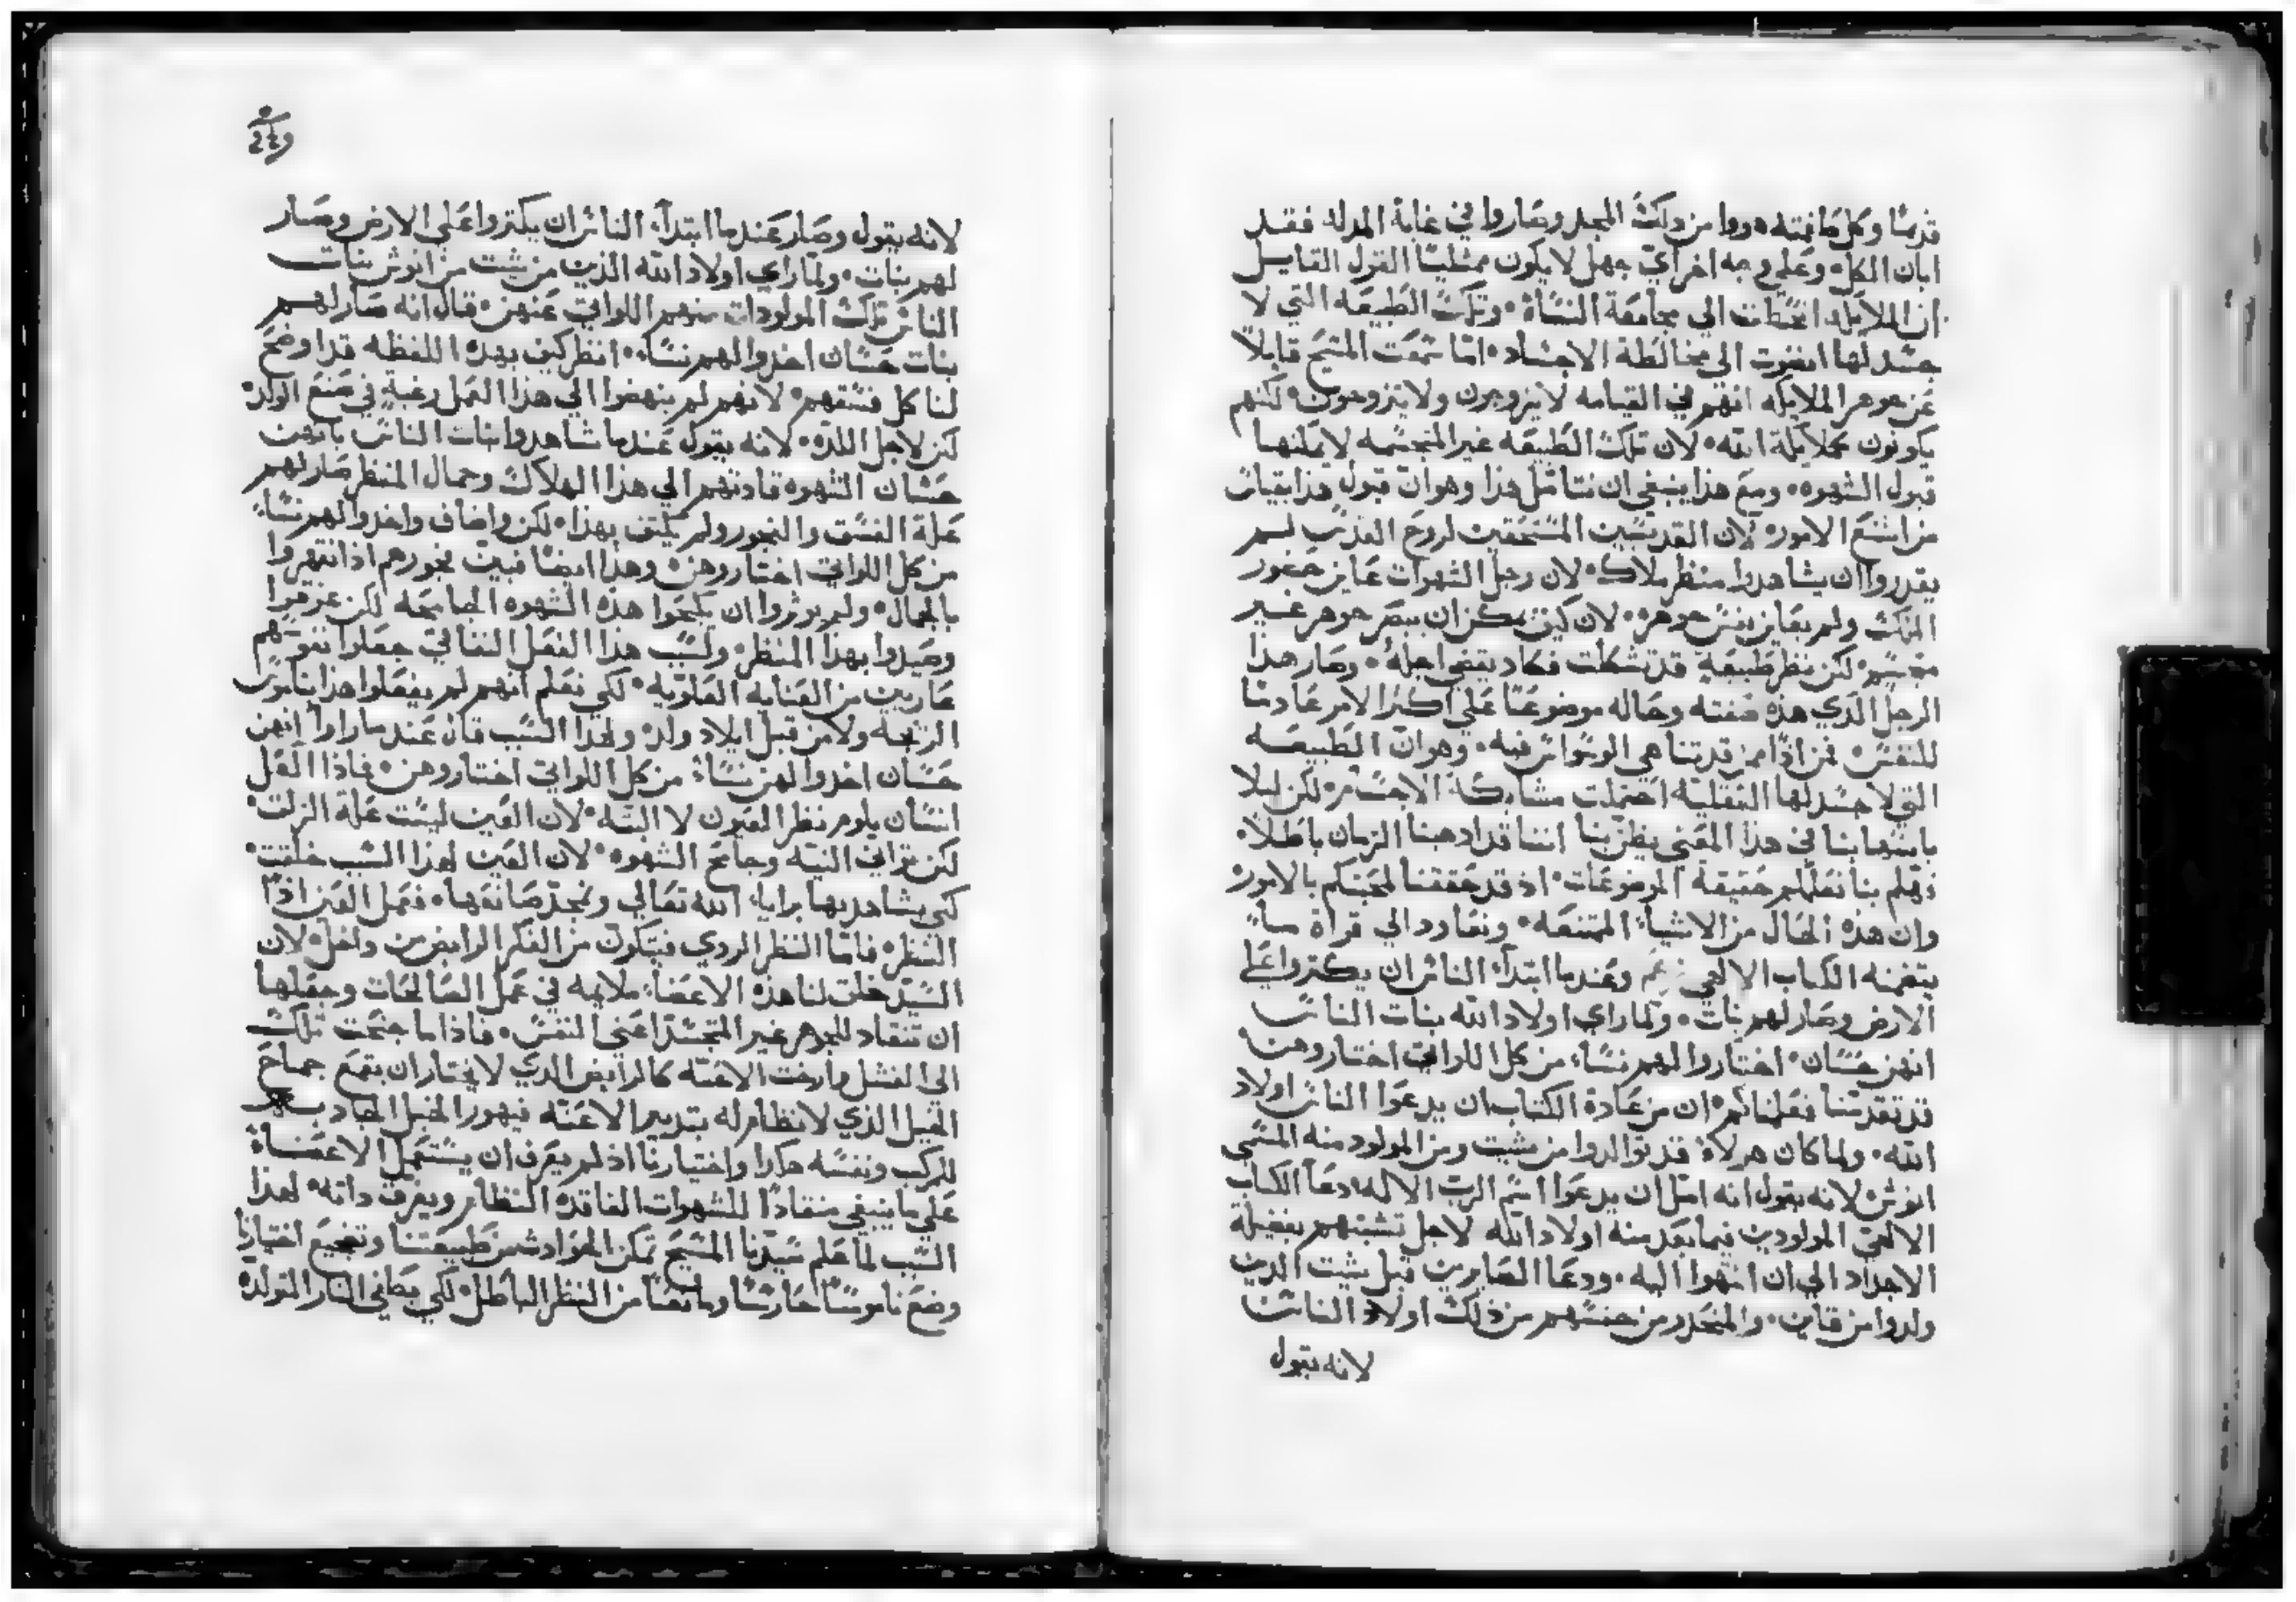 قدرتنا وكل ما نمته هووا من ذلك المجد وصاروا في غاية المدله فقد
ابان الكل وعلي وجه اخر اي جهل لا يكون ممتليًا القول القايل
ان الملايكه انحطت الي مجامعة النسآء وتلك الطبيعه التي لا
جسد لها انغوت الي مخالطة الاجساد اما سمعت المسيح قايلاً
عن جوهر الملايكه انهم في القيامه لا يزوجون ولا يتزوجون لكنهم
يكونون كملايكة الله لان تلك الطبيعه غير المتجسمه لا يمكنها
قبول الشهوه ومع هذا ينبغي ان نتامل هذا وهو ان قبول هذا بقياس
من اشنع الامور لان القديسين المستحقين لروح القدس لم
يقدروا ان يشاهدوا منظر ملاك لان رجل الشهوات عاين حضور
الملك ولم يعاين نفس جوهره لان كيف يمكن ان يبصر جوهر غير
متجسم لكن نظر طبيعةٍ قد تشكلت فكاد يقضي اجله وصار هذا
الرجل الذي هذه صفته وحاله موضوعًا علي اكثر الامر عادمًا
للنفس فمن اذًا من قد تناهي الوسواس فيه وهو ان الطبيعه
التي لا جسد لها العقليه احتملت مشاركة الاجسام لكن ليلا
باسهابنا في هذا المعني يظن بنا اننا قد اذهبنا الزمان باطلاً
فهلم بنا نعلمكم حقيقة الموضوعات اذ قد حققنا لمحبتكم بالامور
وان هذه الحال من الاشيآء الممتنعه ونعاود الي قراة ما
يتضمنه الكتاب الالهي زعم وعندما ابتدا الناس ان يكتروا علي
الارض وصار لهم بنات ولما راي اولاد الله بنات الناس
انهن حسان اختاروا لهم نسآء من كل اللواتي اختاروهن
قد تقدمنا فعلمناكم ان من عادة الكتاب ان يدعوا الناس اولاد
الله ولما كان هولآء قد توالدوا من شيت ومن المولود منه المسمي
انوش لانه يقول انه امل ان يدعوا اسم الرب الاله دعا الكتاب
الالهي المولودين فيما بعد منه اولاد الله لاجل تشبههم بفضيلة
الاجداد الي ان انتهوا اليه ودعا الصايرين قبل شيت الذين
ولدوا من قاين والمنحدر من جنسهم من ذلك اولاد الناس
لانه يقول
٢٤٩
لانه يقول وصار عندما ابتدآء الناس ان يكتروا علي الارض وصار
لهم بنات ولما راي اولاد الله الذين من شيت من انوش بنات
الناس تلك المولودات منهم اللواتي عنهن قال انه صار لهم
بنات حسان اخذوا لهم نسآء انظر كيف بهذه اللفظه قد اوضح
لنا كل فسقهم لانهم لم ينهضوا الي هذا العمل رغبةٍ في صنع الولد
لكن لاجل اللذه لانه يقول عندما شاهدوا بنات الناس بانهن
حسان الشهوه قادتهم الي هذا الهلاك وجمال المنظر صار لهم
علة الفسق والفجور ولم يكتف بهذا لكن واضاف واخذوا لهم نسآء
من كل اللواتي اختاروهن وهذا ايضًا فبين فجورهم اذ انقهروا
بالجمال ولم يوثروا ان يلجموا هذه الشهوه الجامحه لكن غرقوا
وصيدوا بهذا المنظر ولسبب هذا الفعل النفاقي جعلوا نفوسهم
عاريين من العنايه العلويه لكي نعلم انهم لم يفعلوا هذا بناموس
الزيجه ولا من قبل ايلاد ولد ولهذا السبب قال عندما راوا انهن
حسان اخذوا لهن نسآء من كل اللواتي اختاروهن فماذا العل
انسان يلوم نظر العيون لا البته لان العين ليست علة الزلت
لكن تراخي النيه وجامح الشهوه لان العين لهذا السبب خلقت
كي يشاهد بها برايا الله تعالي ونمجد صانعها فعمل العين اذًا
النظر فاما النظر الردي فيتكون من الفكر الرابض من داخل لان
السيد خلق لنا هذه الاعضآء ملايمه في عمل الصالحات وجعلها
ان تنقاد للجوهر غير المتجسد اعني النفس فاذا ما جنحت تلك
الي الفشل وارخت الاعنه كالرايض الذي لا يختار ان يقمع جماح
الخيل الذي لا نظام له بتدبير الاعنه فيهور الخيل الجادب
للمركب ونفسه واختيارنا اذ لم يعرف ان يستعمل الاعضآء
علي ما ينبغي منقادًا للشهوات الفاقدة النظام ويغرق داته لهذا
السبب لما علم سيدنا المسيح تمكن الحوادث من طبيعتنا وتضجيع اختيارنا
وضع ناموسًا حارسًا ومانعًا من النظر الباطل لكي يطفي النار المتولدة